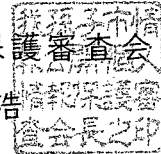 護審査会
告
我孫子市情
情報保護審
査会長之印